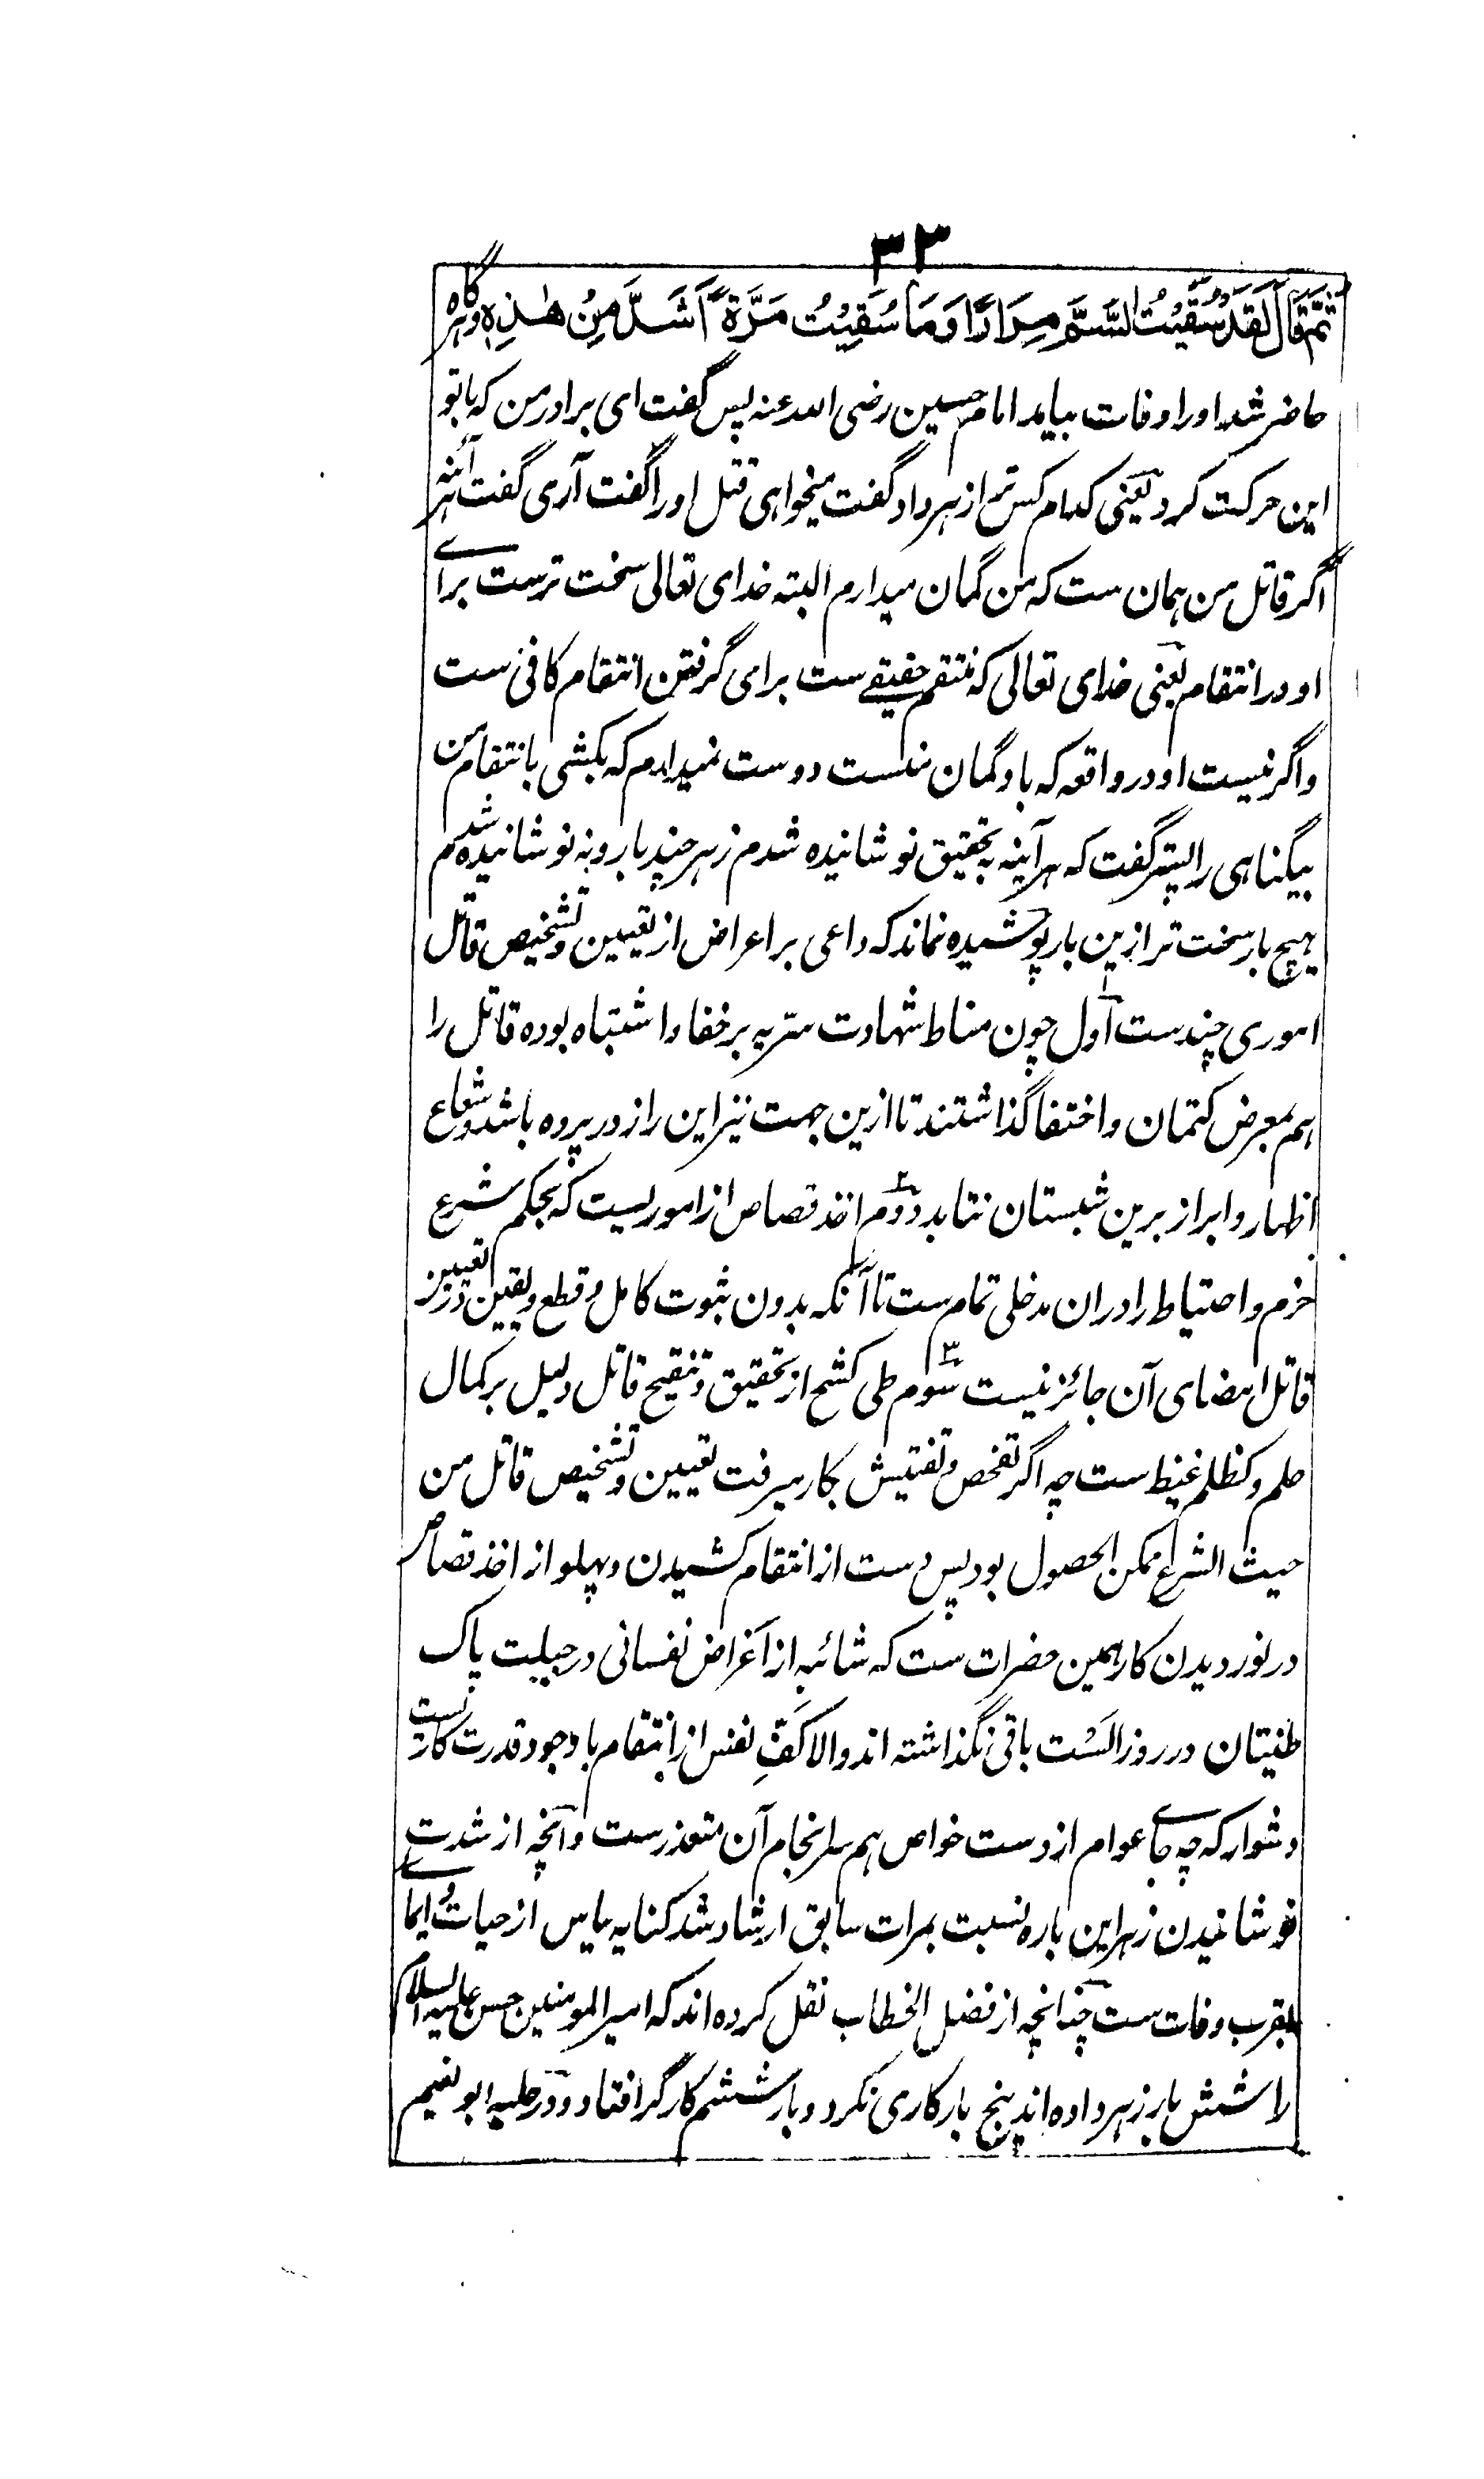 ٣٣
ثُمَّ قَالَ لَقَدْ سُقِيْتُ السَّمَّ مِرَارًا وَمَا سُقِيْتُ مَرَّةً أَشَدَّ مِنْ هٰذِهٖ وگاه
حاضر شد او را وفات بیامد امام حسین رضی الله عنه پس گفت ای برادر من که با تو
این حرکت کرد یعنی کدام کس ترا زهر داد گفت میخواهی قتل او را گفت آری گفت هر آئنه
اگر قاتل من همان ست که من گمان میدارم البته خدای تعالی سخت ترست برای
او در انتقام یعنی خدای تعالی که منتقم حقیقی ست برای گرفتن انتقام کافی ست
و اگر نیست او در واقعه که باو گمان منست دوست نمیدارم که بکشی بانتقام من
بیگناهی را پستر گفت که هر آینه به تحقیق نوشانیده شدم زهر چند بار و نه نوشانیده شدم
هیچ بار سخت تر ازین بار پوشیده نماند که داعی بر اعراض از تعیین و تشخیص قاتل
اموری چندست اول چون مناط شهادت سریه بر خفا و اشتباه بوده قاتل را
هم بمعرض کتمان و اختفا گذاشتند تا ازین جهت نیز این راز در پرده باشد و شعاع
اظهار و ابراز برین شبستان نتابد دوم اخذ قصاص از امور یست که بحکم شرع
حزم و احتیاط را دران مدخلی تمام ست تا آنکه بدون ثبوت کامل و قطع و یقین در تعیین
قاتل امضای آن جائز نیست سوم طی کشح از تحقیق و تنقیح قاتل دلیل بر کمال
حلم و کظم غیظ ست چه اگر تفحص و تفتیش بکار میرفت تعیین و تشخیص قاتل من
حیث الشرع ممکن الحصول بود پس دست از انتقام کشیدن و پهلو از اخذ قصاص
در نوردیدن کار همین حضرات ست که شائبه از اغراض نفسانی در جبلت پاک
طینتان در روز الست باقی نگذاشته اند والا کفِّ نفس از انتقام باوجود قدرت کاریست
دشوار که چه جای عوام از دست خواص هم سرانجام آن متعذرست و آنچه از شدت
نوشانیدن زهر این باره نسبت بمرات سابق ارشاد شد کنایه بیاس از حیات و ایمای
بقرب وفات ست چنانچه از فصل الخطاب نقل کرده اند که امیر المومنین حسن علیه السلام
را شش بار زهر داده اند پنج بار کاری نکرد و بار ششم کارگر افتاد و در حلیه ابو نعیم